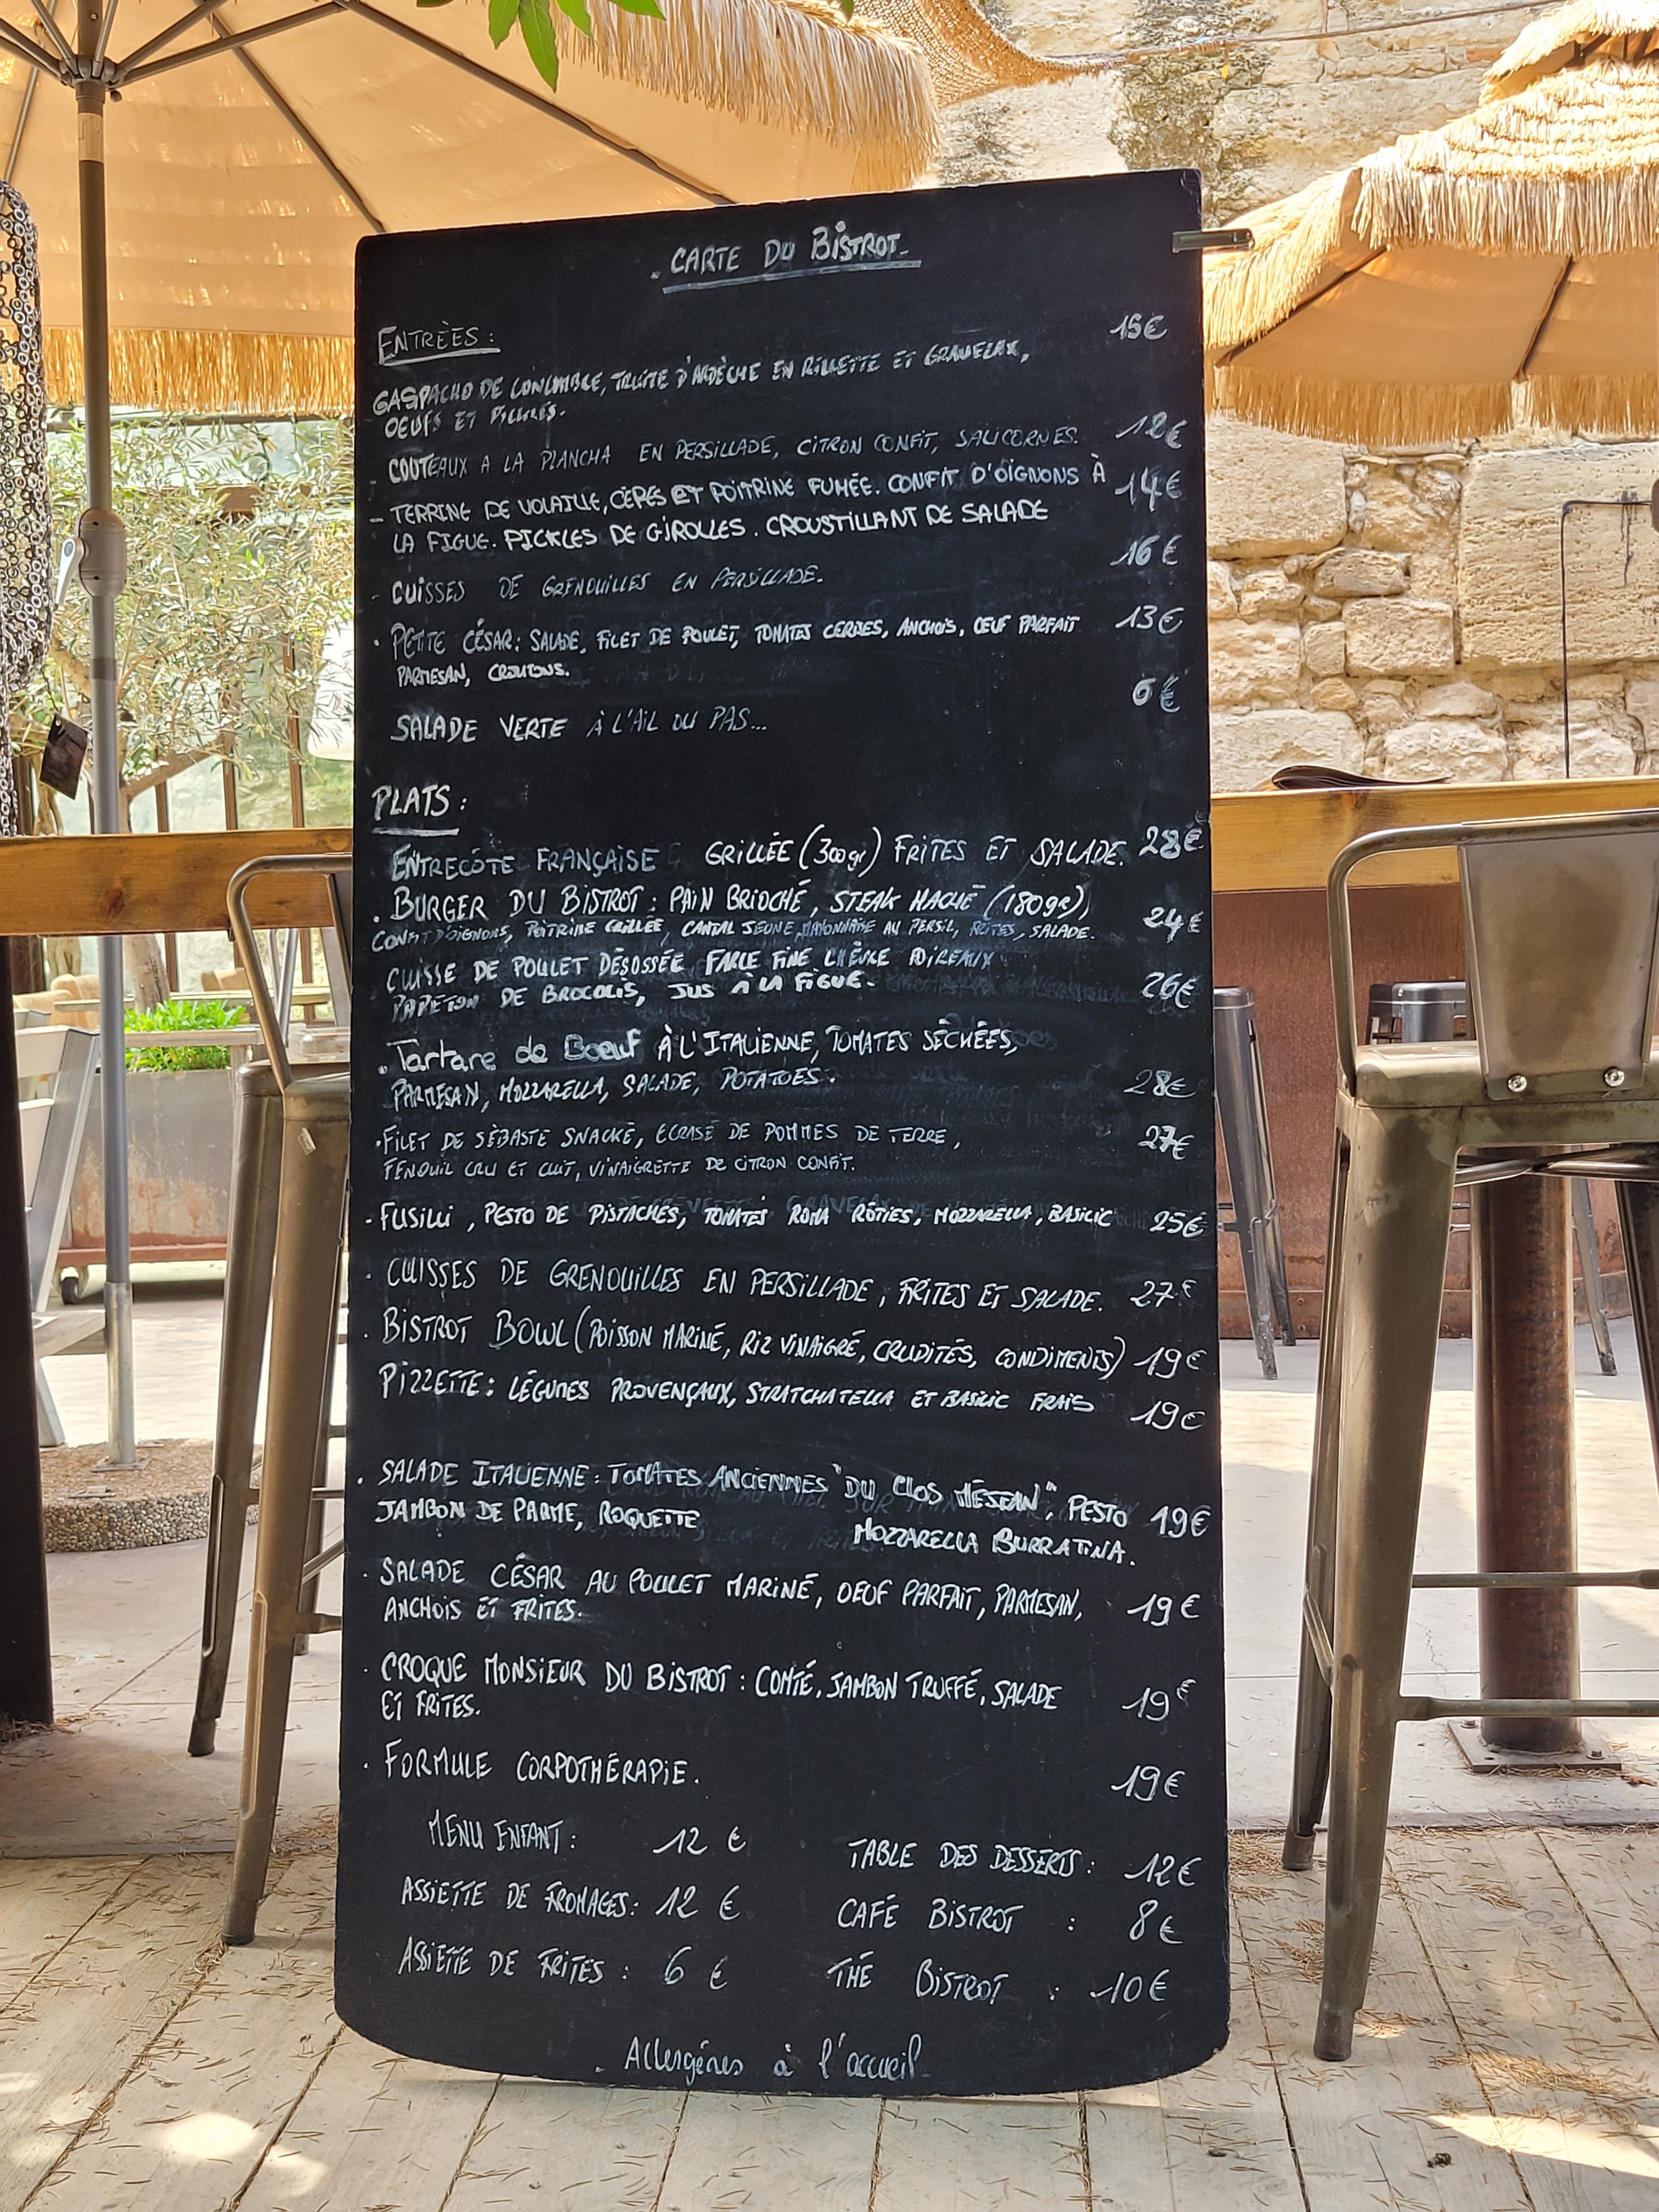 CARTE DU BISTROT
ENTRÈES :
15€
GASPACHO DE CONCOMBRE, TRUITE D'ARDÈCHE EN RILLETTE ET GRAVELAX,
OEUFS ET PICKLES.
- COUTEAUX A LA PLANCHA EN PERSILLADE, CITRON CONFIT, SALICORNES. 12€
- TERRINE DE VOLAILLE, CÈPES ET POITRINE FUMÉE. CONFIT D'OIGNONS À 14€
LA FIGUE. PICKLES DE GIROLLES. CROUSTILLANT DE SALADE
- CUISSES DE GRENOUILLES EN PERSILLADE. 16€
· PETITE CÉSAR: SALADE, FILET DE POULET, TOMATES CERISES, ANCHOIS, OEUF PARFAIT 13€
PARMESAN, CROUTONS.
SALADE VERTE À L'AIL OU PAS... 6€
PLATS :
ENTRECÔTE FRANÇAISE GRILLÉE (300gr) FRITES ET SALADE. 28€
. BURGER DU BISTROT : PAIN BRIOCHÉ, STEAK HACHÉ (180gr), 24€
CONFIT D'OIGNONS, POITRINE GRILLÉE, CANTAL JEUNE, MAYONNAISE AU PERSIL, FRITES, SALADE.
CUISSE DE POULET DÉSOSSÉE FARCE FINE CHÈVRE POIREAUX
PAPETON DE BROCOLIS, JUS À LA FIGUE. 26€
. Tartare de Boeuf À L'ITALIENNE, TOMATES SÉCHÉES,
PARMESAN, MOZZARELLA, SALADE, POTATOES. 28€
·FILET DE SÉBASTE SNACKÉ, ÉCRASÉ DE POMMES DE TERRE, 27€
FENOUIL CRU ET CUIT, VINAIGRETTE DE CITRON CONFIT.
- FUSILLI, PESTO DE PISTACHES, TOMATES ROMA RÔTIES, MOZZARELLA, BASILIC 25€
· CUISSES DE GRENOUILLES EN PERSILLADE, FRITES ET SALADE. 27€
. BISTROT BOWL (POISSON MARINÉ, RIZ VINAIGRÉ, CRUDITÉS, CONDIMENTS) 19€
PIZZETTE: LÉGUMES PROVENÇAUX, STRATCHATELLA ET BASILIC FRAIS 19€
. SALADE ITALIENNE : TOMATES ANCIENNES "DU CLOS MÉSEAN", PESTO 19€
JAMBON DE PARME, ROQUETTE MOZZARELLA BURRATINA.
· SALADE CÉSAR AU POULET MARINÉ, OEUF PARFAIT, PARMESAN, 19€
ANCHOIS ET FRITES.
· CROQUE MONSIEUR DU BISTROT : COMTÉ, JAMBON TRUFFÉ, SALADE 19€
ET FRITES.
· FORMULE CORPOTHÉRAPIE. 19€
MENU ENFANT : 12 €
TABLE DES DESSERTS : 12€
ASSIETTE DE FROMAGES: 12 €
CAFÉ BISTROT : 8€
ASSIETTE DE FRITES : 6 €
THÉ BISTROT : 10€
. Allergénes à l'accueil